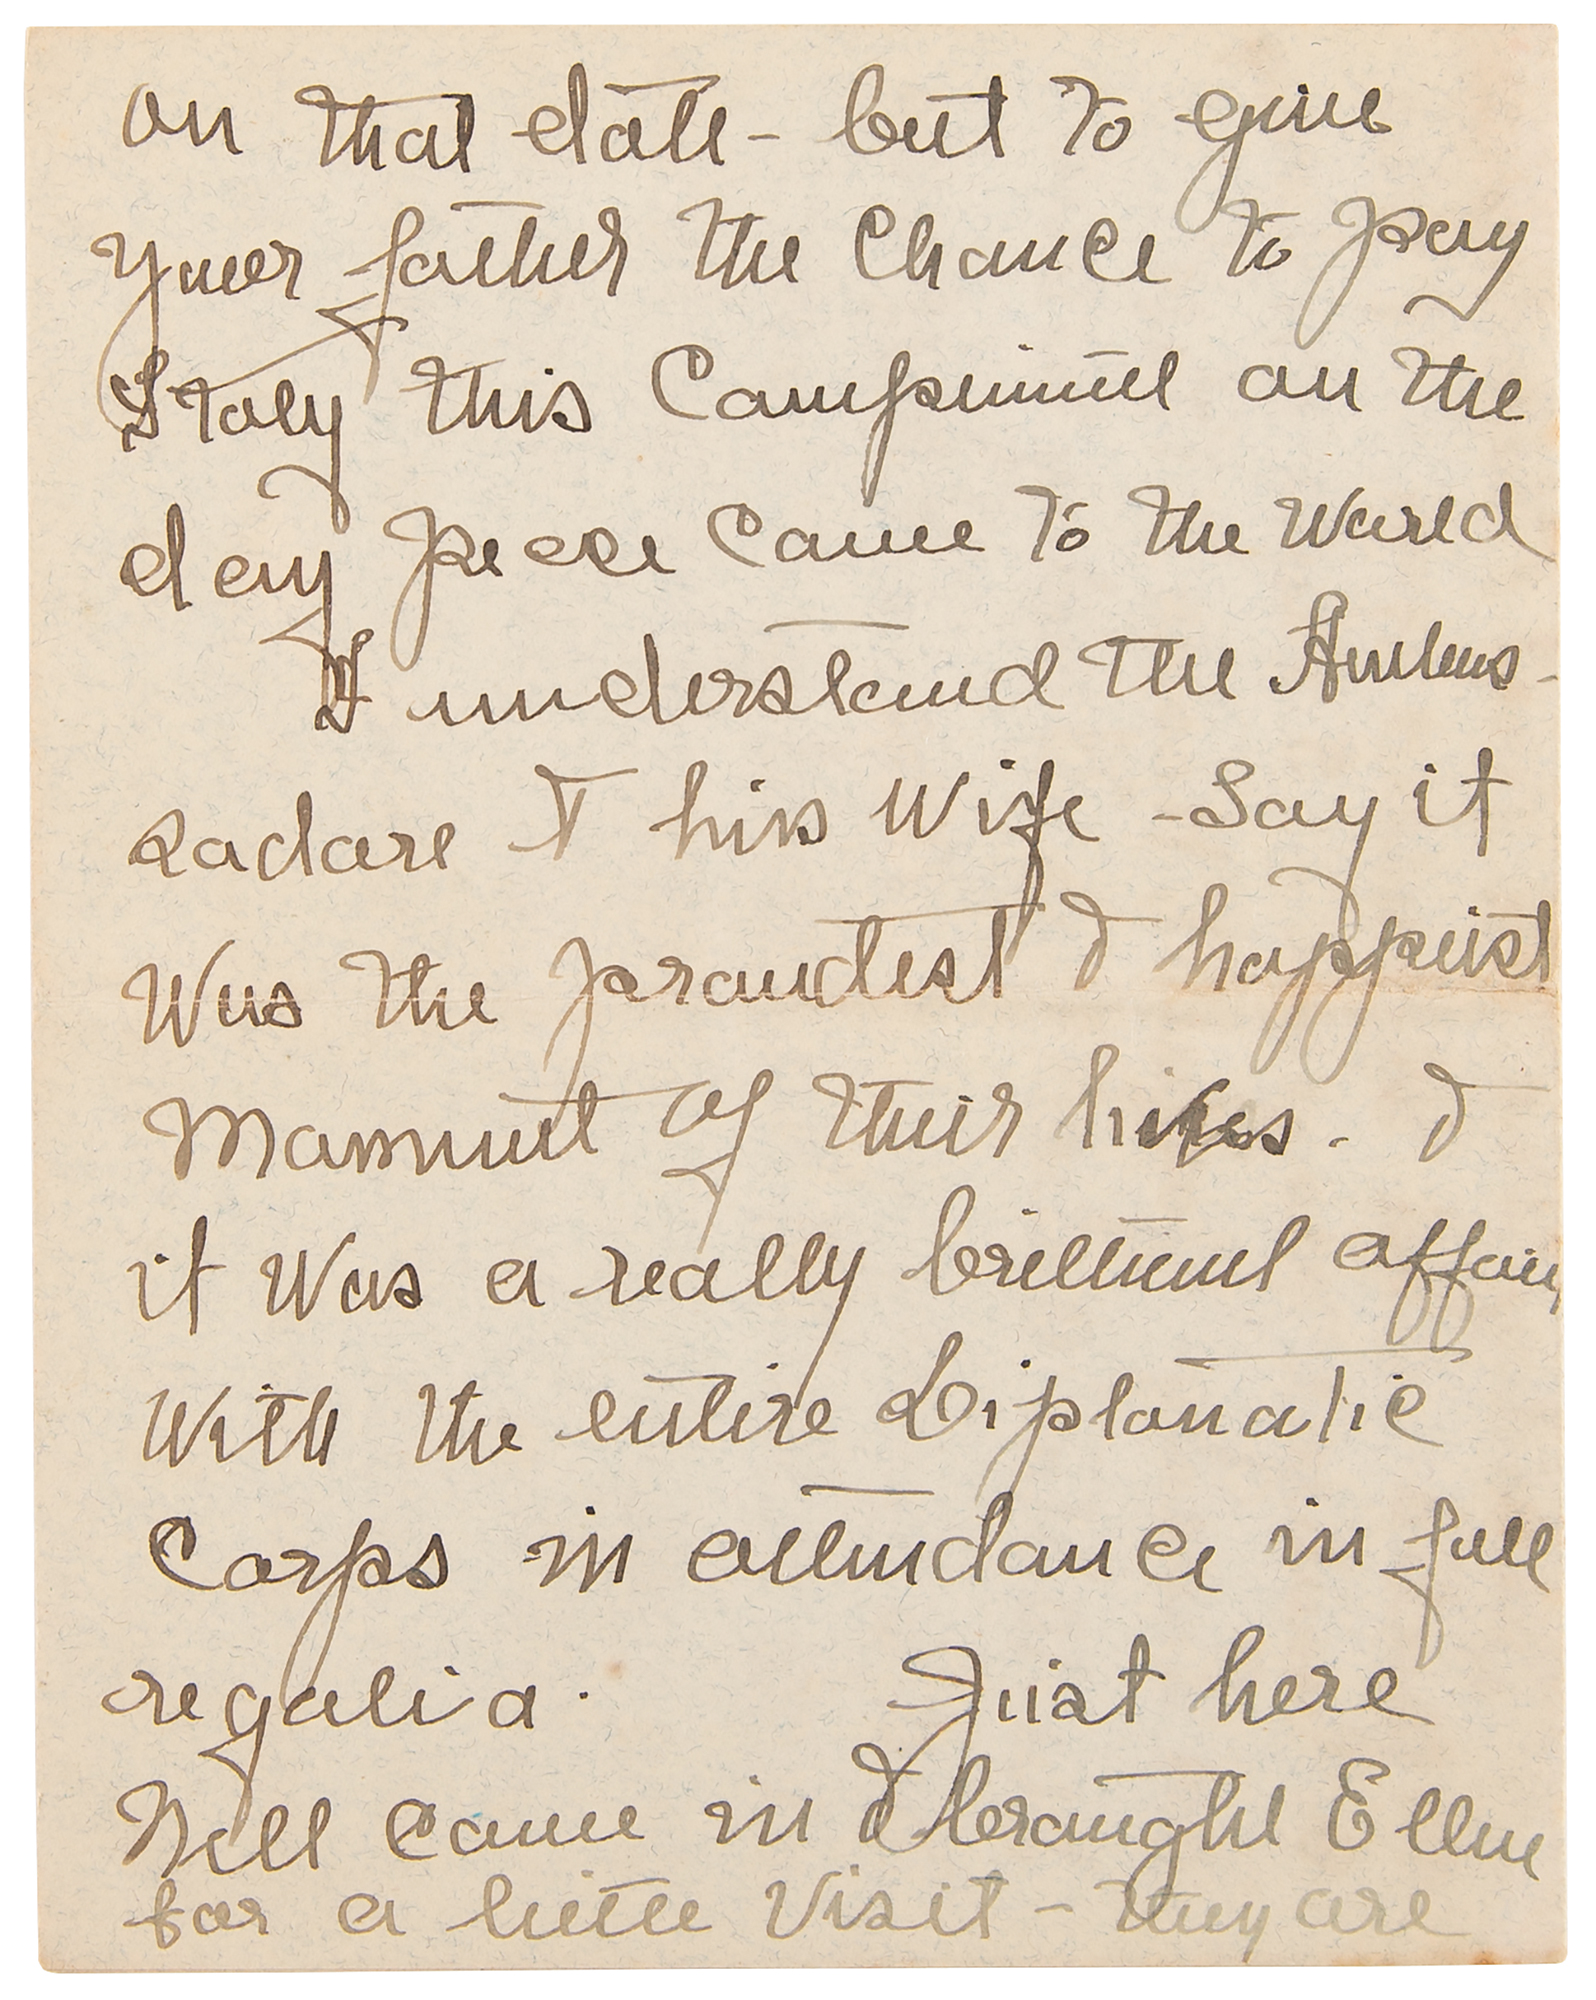 on that date - but to give
your father the chance to pay
Italy this compliment on the
day peace came to the World
I understand the Ambas-
sadore & his Wife - Say it
Was the proudest & happiest
Moment of their lives. &
it Was a really brilliant affair,
With the entire Diplomatic
Corps in attendance in full
regalia. Just here
Nell came in & brought Ellen
for a little Visit - they are